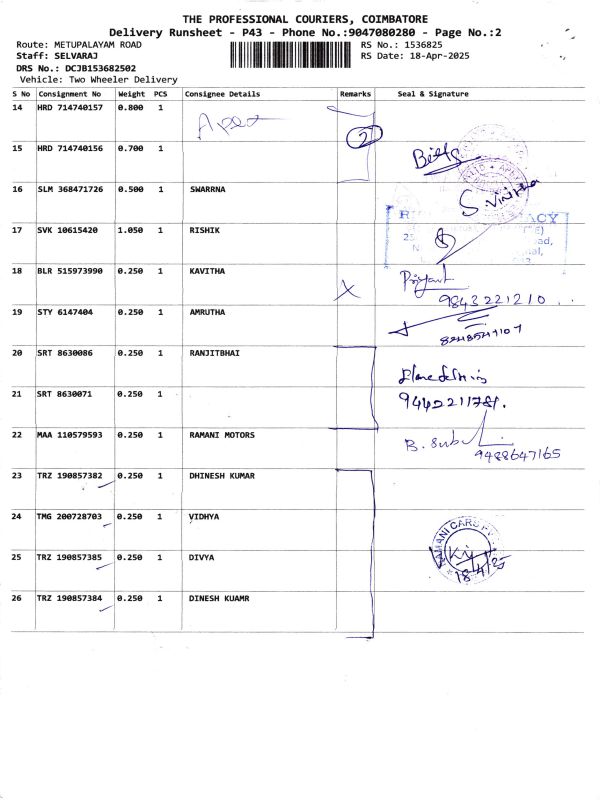 THE PROFESSIONAL COURIERS, COIMBATORE
Delivery Runsheet - P43 - Phone No.:9047080280 - Page No.:2
Route: METUPALAYAM ROAD RS No.: 1536825
Staff: SELVARAJ RS Date: 18-Apr-2025
DRS No.: DCJB153682502
Vehicle: Two Wheeler Delivery
S No Consignment No Weight PCS Consignee Details Remarks Seal & Signature
14 HRD 714740157 0.800 1
2
15 HRD 714740156 0.700 1
16 SLM 368471726 0.500 1 SWARRNA
S. Vinitha
17 SVK 10615420 1.050 1 RISHIK
18 BLR 515973990 0.250 1 KAVITHA X
9843221210
19 STY 6147404 0.250 1 AMRUTHA
20 SRT 8630086 0.250 1 RANJITBHAI
21 SRT 8630071 0.250 1
9442211781.
22 MAA 110579593 0.250 1 RAMANI MOTORS B. Sub
9488647165
23 TRZ 190857382 0.250 1 DHINESH KUMAR
24 TMG 200728703 0.250 1 VIDHYA
RAMANI CARS
25 TRZ 190857385 0.250 1 DIVYA
18/4/25
26 TRZ 190857384 0.250 1 DINESH KUAMR